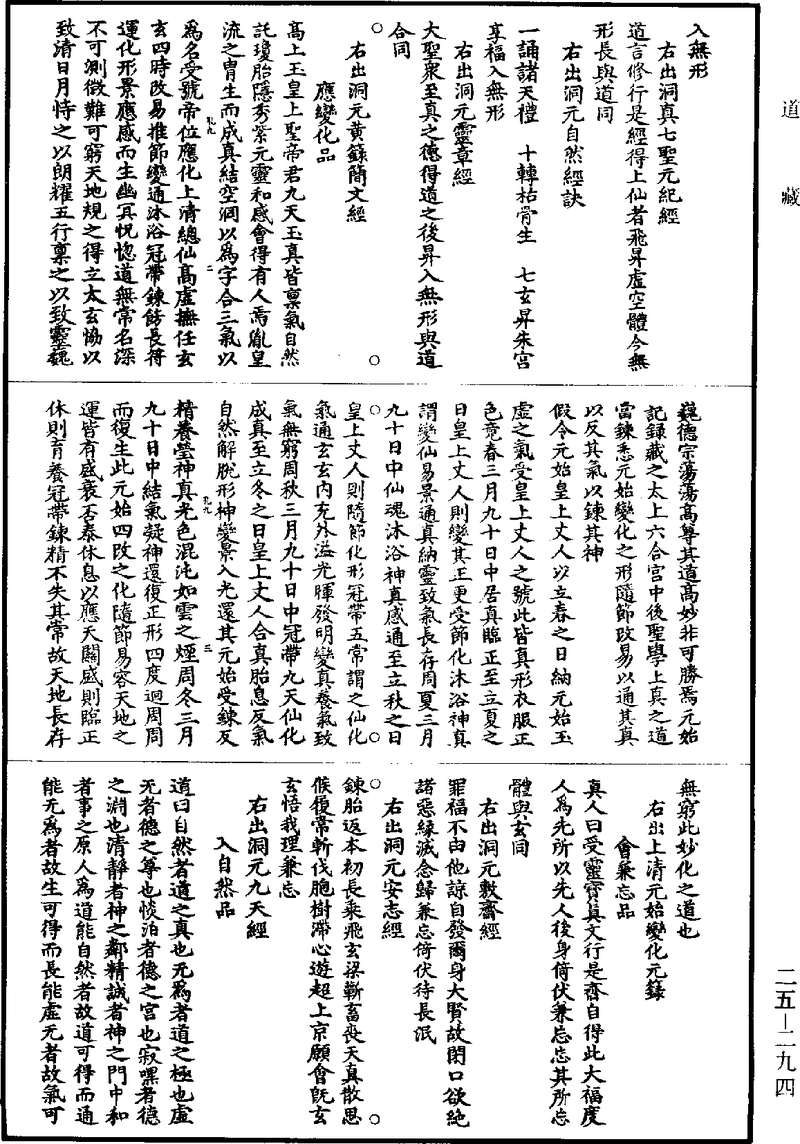 道藏
入無形
右出洞真七聖元紀經
道言修行是經得上仙者飛昇虛空體合無
形長與道同
右出洞元自然經訣
一誦諸天禮　十轉枯骨生　七玄昇朱宮
享福入無形
右出洞元靈章經
大聖衆至真之德得道之後昇入無形與道
合同
右出洞元黃籙簡文經
應變化品
高上玉皇上聖帝君九天玉真皆稟氣自然
託瓊胎隱秀紫元靈和感會得有人焉胤皇
流之胄生而成真結空洞以爲字合三氣以
爲名受號帝位應化上清總仙高虛撫任玄
玄四時改易推節變通沐浴冠帶鍊飭長符
運化形景應感而生幽冥恍惚道無常名深
不可測微難可窮天地規之得立太玄協以
致清日月恃之以朗耀五行稟之以致靈巍
巍德宗蕩蕩高尊其道高妙非可勝焉元始
記錄藏之太上六合宮中後聖學上真之道
當鍊悉元始變化之形隨節改易以通其真
以反其氣以鍊其神
假令元始皇上丈人以立春之日納元始玉
虛之氣受皇上丈人之號此皆真形衣服正
色竟春三月九十日中居真臨正至立夏之
日皇上丈人則變其正更受節化沐浴神真
謂變仙易景通真納靈致氣長存周夏三月
九十日中仙魂沐浴神真感通至立秋之日
皇上丈人則隨節化形冠帶五常謂之仙化
氣通玄玄内充外溢光暉發明變真養氣致
氣無窮周秋三月九十日中冠帶九天仙化
成真至立冬之日皇上丈人合真胎息反氣
自然解脫形神變景入光還其元始受鍊反
精養瑩神真光色混沌如雲之煙周冬三月
九十日中結氣凝神還復正形四度迴周周
而復生此元始四改之化隨節易容天地之
運皆有盛衰否泰休息以應天關感則臨正
休則育養冠帶鍊精不失其常故天地長存
無窮此妙化之道也
右出上清元始變化元籙
會兼忘品
真人曰受靈寶真文行是齋自得此大福度
人爲先所以先人後身倚伏兼忘忘其所忘
體與玄同
右出洞元敷齋經
罪福不由他諒自發爾身大賢故閉口欲絶
諸惡緣滅念歸兼忘倚伏待長泯
右出洞元安志經
鍊胎返本初長乘飛玄梁斬畜喪天真散思
候復常斬伐胞樹滯心遊超上京願會旣玄
玄悟我理兼忘
右出洞元九天經
入自然品
道曰自然者道之真也无爲者道之極也虛
无者德之尊也惔泊者德之宮也寂嘿者德
之淵也清靜者神之鄰精誠者神之門中和
者事之原人爲道能自然者故道可得而通
能无爲者故生可得而長能虛无者故氣可
二五—二九四